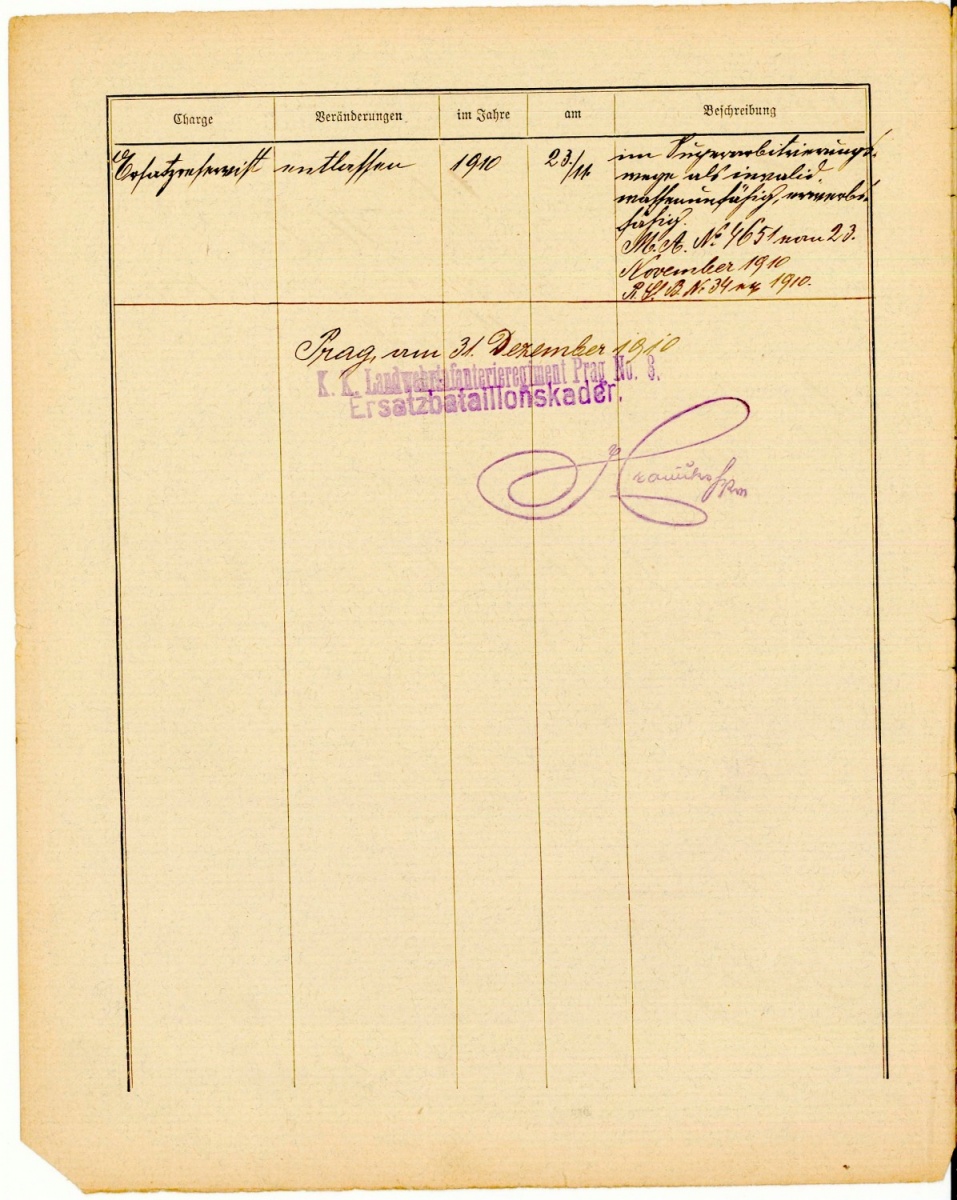 Charge Veränderungen im Jahre am Beschreibung
Ersatzreservist entlassen 1910 23./11. im Superarbitrierungs-
wege als invalid,
waffenunfähig, erwerbs-
fähig.
M. A. No 4651 vom 23.
November 1910
No 34 ex 1910.
Prag, am 31. Dezember 1910
K. K. Landwehrinfanterieregiment Prag No. 8.
Ersatzbataillonskader.